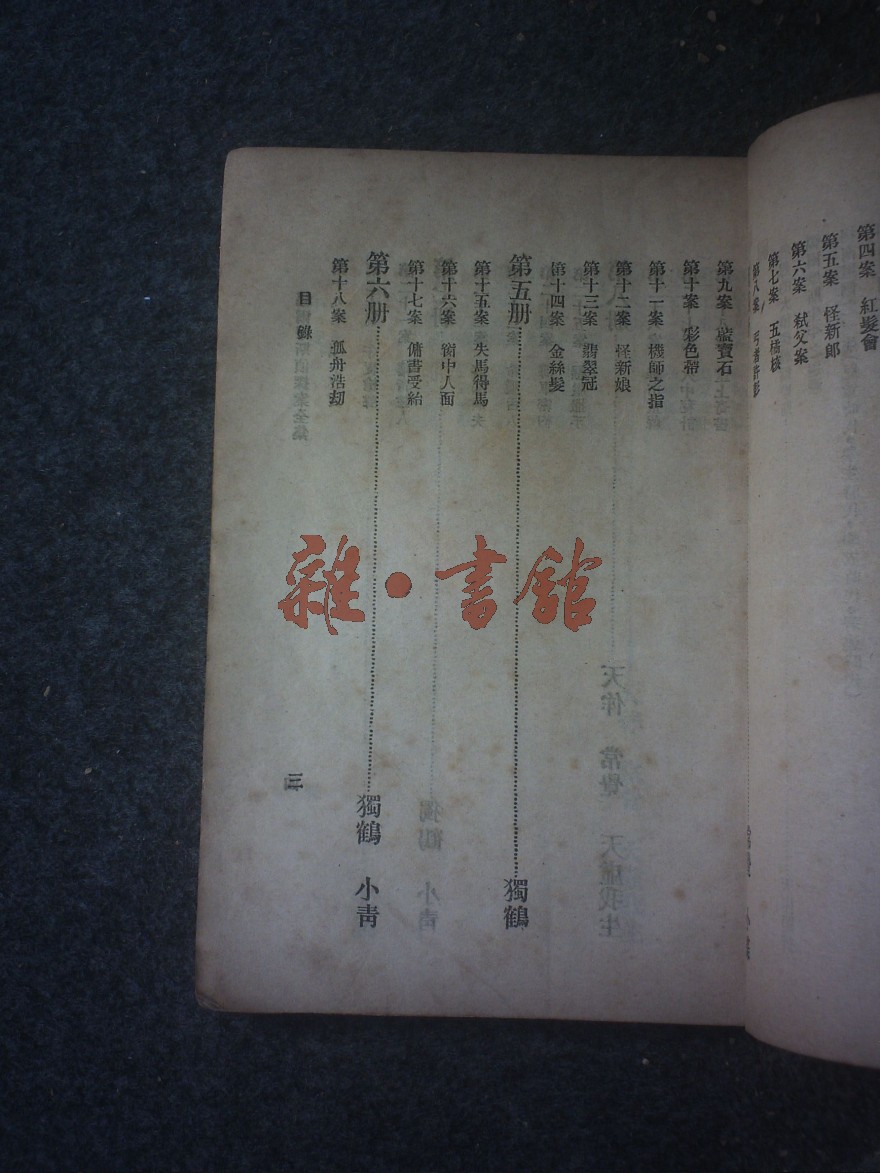 第四案　紅髮會
第五案　怪新郎
第六案　弒父案
第七案　五橘核
第八案　丐者許彭
第九案　藍寶石
第十案　彩色帶
第十一案　機師之指
第十二案　怪新娘
第十三案　翡翠冠
第十四案　金絲髮
第五册………獨鶴
第十五案　失馬得馬
第十六案　窗中人面
第十七案　傭書受紿
第六册………獨鶴　小靑
第十八案　孤舟浩刼
目錄
三
雜·書館